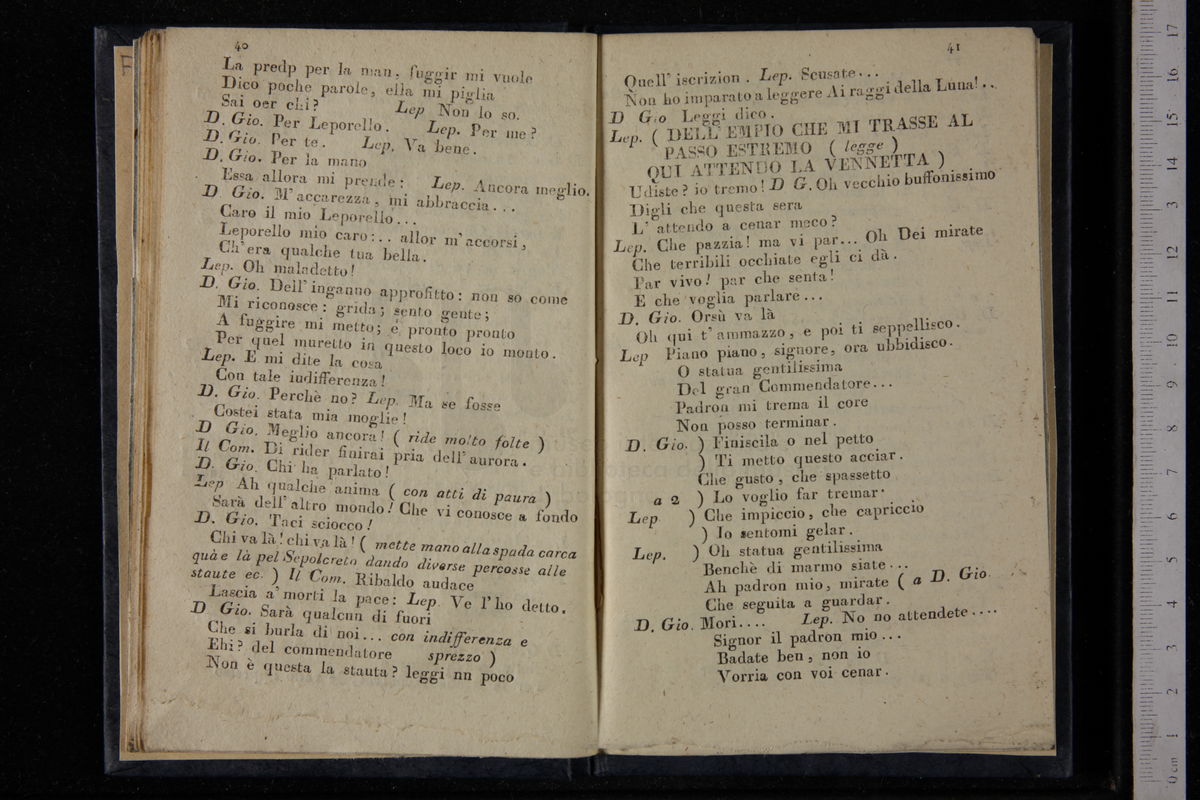 40
La predp per la man, fuggir mi vuole
Dico poche parole, ella mi piglia
Sai oer chi? Lep Non lo so.
D. Gio. Per Leporello. Lep. Per me?
D. Gio. Per te. Lep. Va bene.
D. Gio. Per la mano
Essa allora mi prende: Lep. Ancora meglio.
D Gio. M' accarezza, mi abbraccia...
Caro il mio Leporello...
Leporello mio caro:.. allor m' accorsi,
Ch' era qualche tua bella.
Lep. Oh maladetto!
D. Gio. Dell' inganno approfitto: non so come
Mi riconosce: grida; sento gente;
A fuggire mi metto; e pronto pronto
Per quel muretto in questo loco io monto.
Lep. E mi dite la cosa
Con tale iudifferenza!
D. Gio. Perchè no? Lep. Ma se fosse
Costei stata mia moglie!
D Gio. Meglio ancora! ( ride molto folte )
Il Com. Di rider finirai pria dell' aurora.
D. Gio. Chi ha parlato!
Lep Ah qualche anima ( con atti di paura )
Sarà dell' altro mondo! Che vi conosce a fondo
D. Gio. Taci sciocco!
Chi va là! chi va là! ( mette mano alla spada carca
quà e là pel Sepolcreto dando diverse percosse alle
staute ec. ) Il Com. Ribaldo audace
Lascia a' morti la pace: Lep Ve l' ho detto.
D Gio. Sarà qualcun di fuori
Che si burla di noi... con indifferenza e
Ehi? del commendatore sprezzo )
Non è questa la stauta? leggi nn poco
41
Quell' iscrizion. Lep. Scusate...
Non ho imparato a leggere Ai raggi della Luna!..
D Gio Leggi dico.
Lep. ( DELL' EMPIO CHE MI TRASSE AL
PASSO ESTREMO ( legge )
QUI ATTENDO LA VENNETTA )
Udiste? io tremo! D G. Oh vecchio buffonissimo
Digli che questa sera
L' attendo a cenar meco?
Lep. Che pazzia! ma vi par... Oh Dei mirate
Che terribili occhiate egli ci dà.
Par vivo! par che senta!
E che voglia parlare...
D. Gio. Orsù va là
Oh qui t' ammazzo, e poi ti seppellisco.
Lep Piano piano, signore, ora ubbidisco.
O statua gentilissima
Del gran Commendatore...
Padron mi trema il core
Non posso terminar.
D. Gio. ) Finiscila o nel petto
) Ti metto questo acciar.
Che gusto, che spassetto
a 2 ) Lo voglio far tremar.
Lep ) Che impiccio, che capriccio
) Io sentomi gelar.
Lep. ) Oh statua gentilissima
Benchè di marmo siate...
Ah padron mio, mirate ( a D. Gio.
Che seguita a guardar.
D. Gio. Mori.... Lep. No no attendete....
Signor il padron mio...
Badate ben, non io
Vorria con voi cenar.